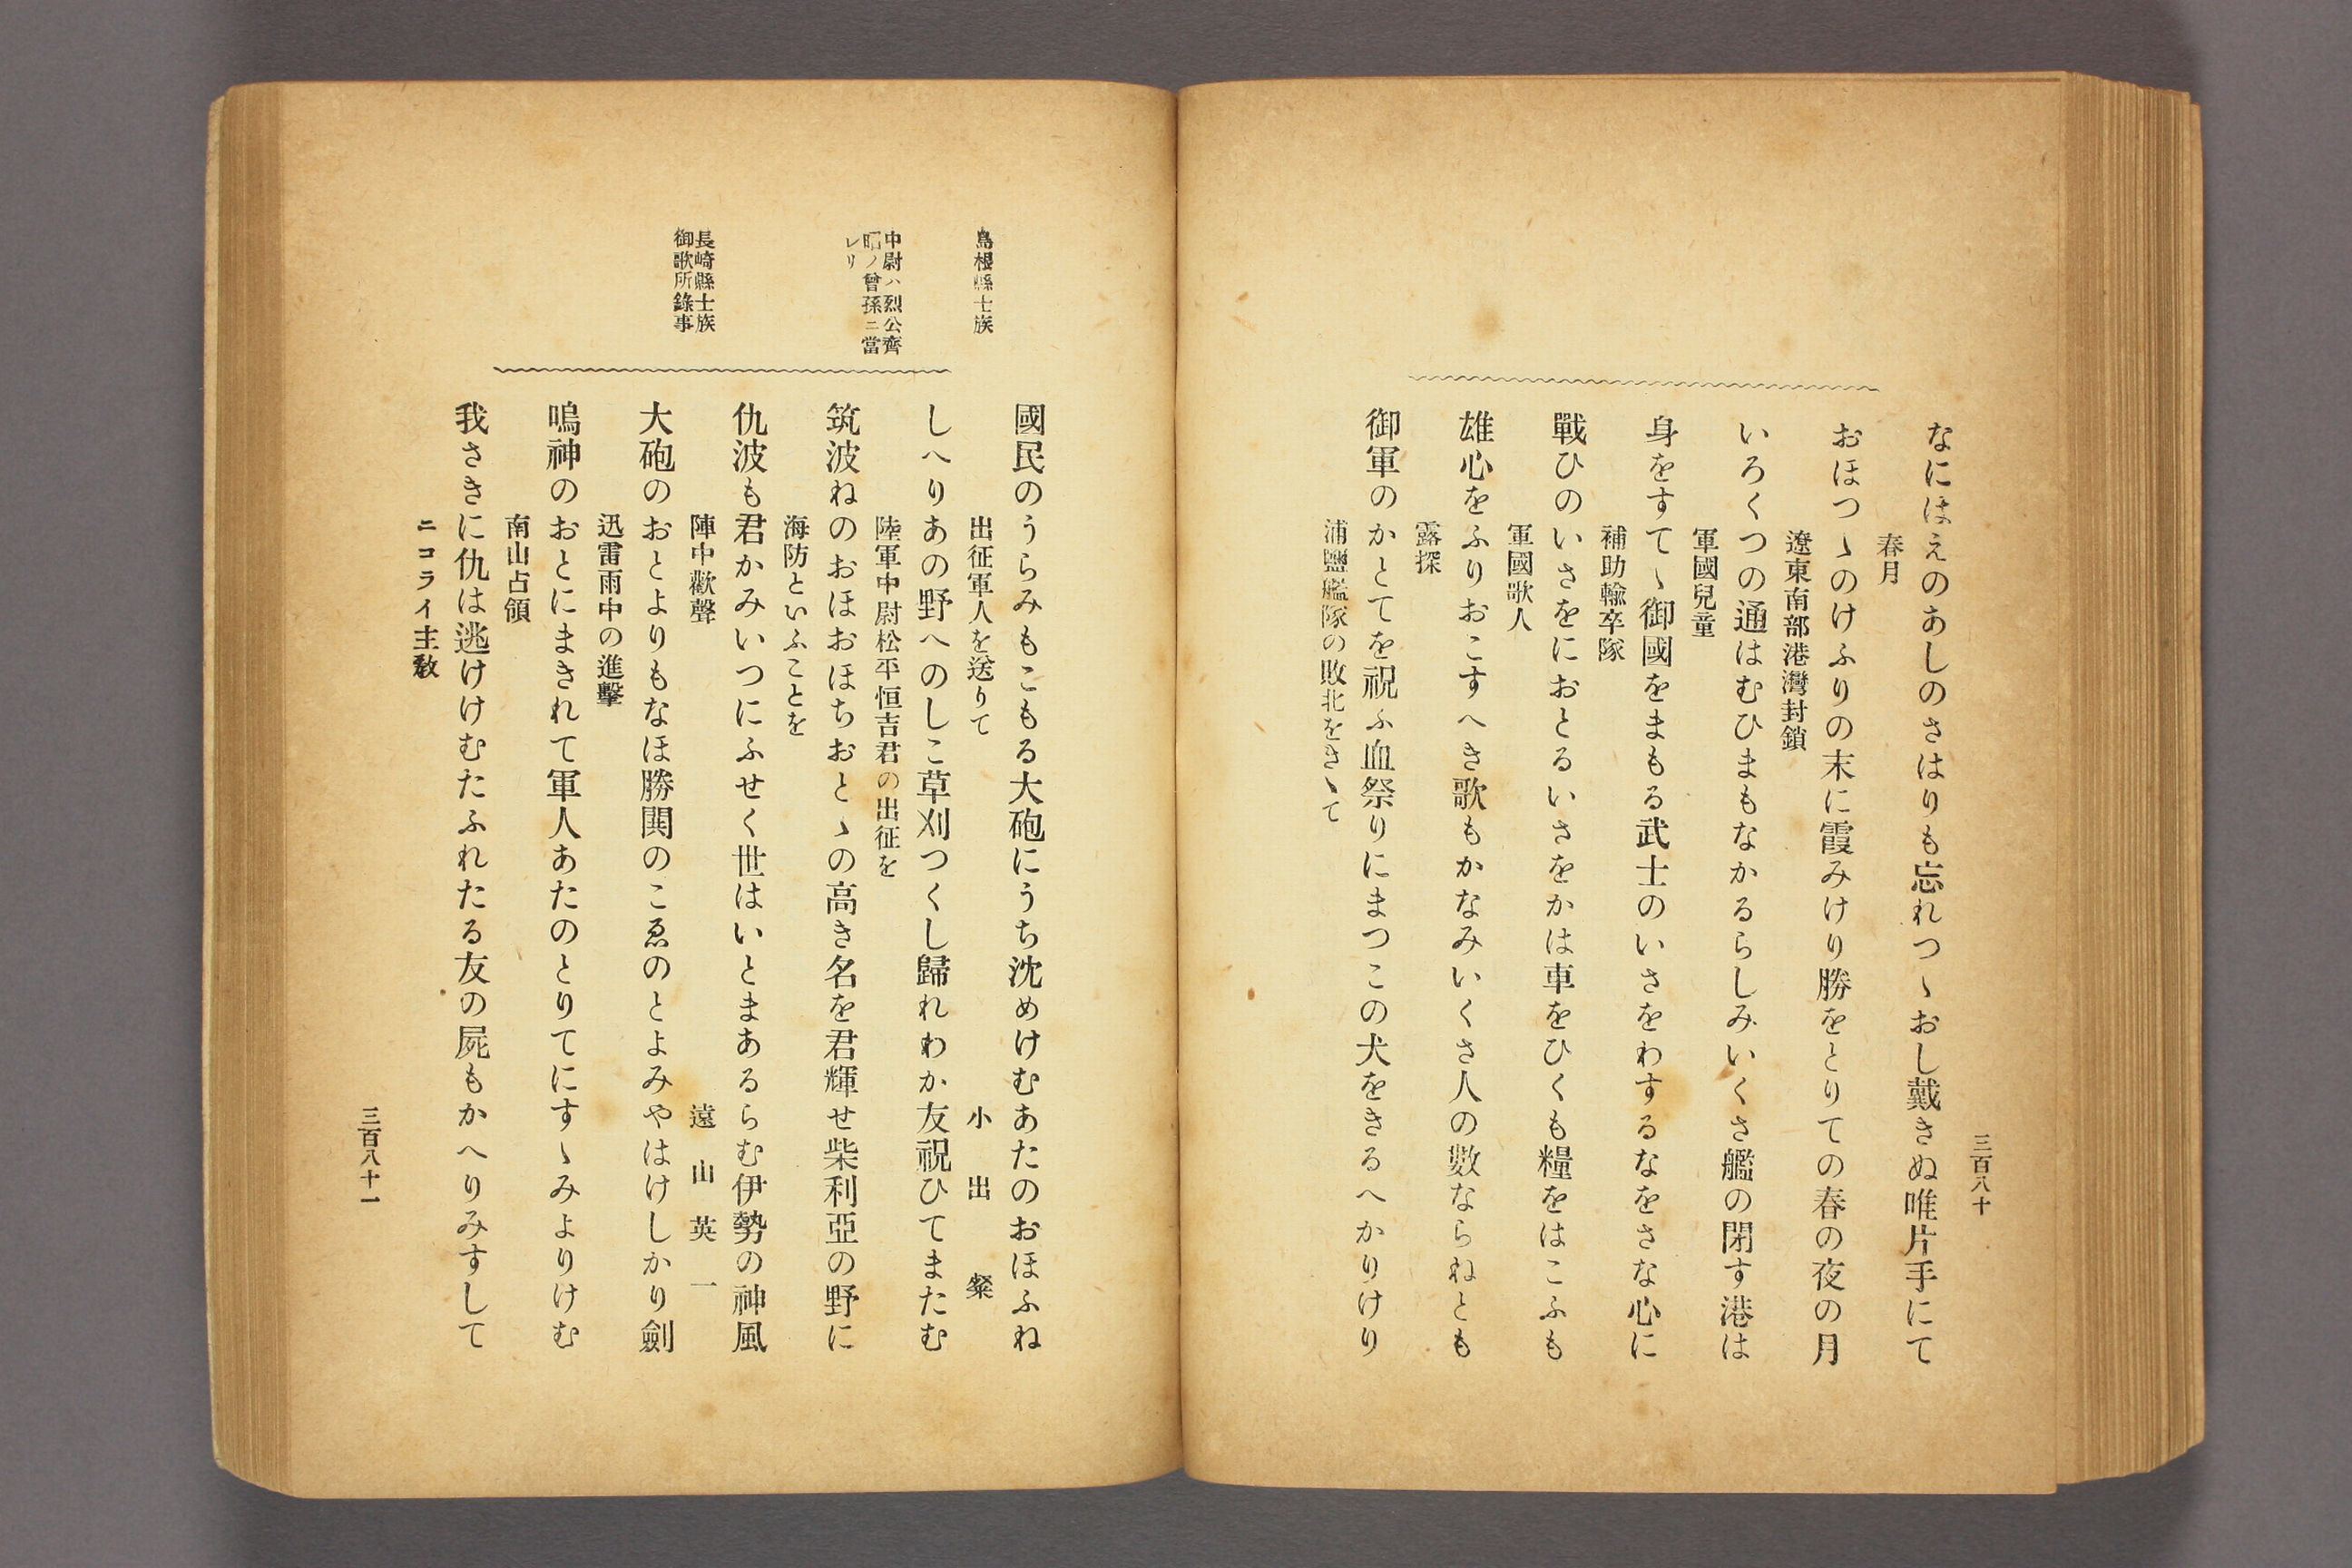 三百八十
なにほえのあしのさはりも忘れつゝおし戴きぬ唯片手にて
春月
おほつゝのけふりの末に霞みけり勝をとりての春の夜の月
遼東南部港灣封鎖
いろくつの通はむひまもなかるらしみいくさ艦の閉す港は
軍國兒童
身をすてゝ御國をまもる武士のいさをわするなをさな心に
補助輸卒隊
戰ひのいさをにおとるいさをかは車をひくも糧をはこふも
軍國歌人
雄心をふりおこすへき歌もかなみいくさ人の數ならねとも
露探
御軍のかとてを祝ふ血祭りにまつこの犬をきるへかりけり
浦鹽艦隊の敗北をきゝて
國民のうらみもこもる大砲にうち沈めけむあたのおほふね
島根縣士族
出征軍人を送りて　小出粲
しへりあの野へのしこ草刈つくし歸れわか友祝ひてまたむ
中尉ハ烈公齊
昭ノ曾孫ニ當
レリ
陸軍中尉松平恒吉君の出征を
筑波ねのおほおほちおとゝの高き名を君輝せ柴利亞の野に
海防といふことを
仇波も君かみいつにふせく世はいとまあるらむ伊勢の神風
長崎縣士族
御歌所錄事
陣中歡聲　遠山英一
大砲のおとよりもなほ勝鬨のこゑのとよみやはけしかり劍
迅雷雨中の進擊
鳴神のおとにまきれて軍人あたのとりてにすゝみよりけむ
南山占領
我さきに仇は逃けけむたふれたる友の屍もかへりみすして
ニコライ主敎
三百八十一